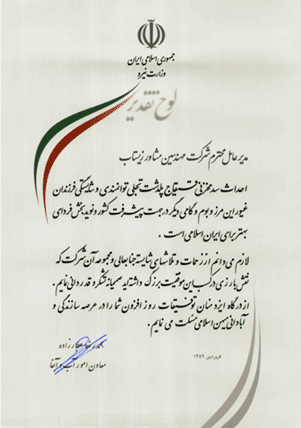 جمهوری اسلامی ایران
وزارت نیرو
لوح تقدیر
مدیر عامل محترم شرکت مهندسین مشاور زیستاب
احداث سد مخزنی فینسک تجلی توانمندی و شایستگی فرزندان
غیور این مرز و بوم و گامی دیگر در جهت پیشرفت کشور و نوید بخش فردای
بهتر برای ایران اسلامی است .
لازم می دانم از زحمات و تلاشهای شایسته جنابعالی و مجموعه آن شرکت که
نقش بارزی در کسب این موفقیت بزرگ داشته اید صمیمانه تشکر و قدردانی نمایم .
از درگاه ایزد منان توفیقات روز افزون شما را در عرصه سازندگی و
آبادانی میهن اسلامی مسئلت می نمایم .
معاون امور آب و آبفا
فروردین ۱۳۸۹